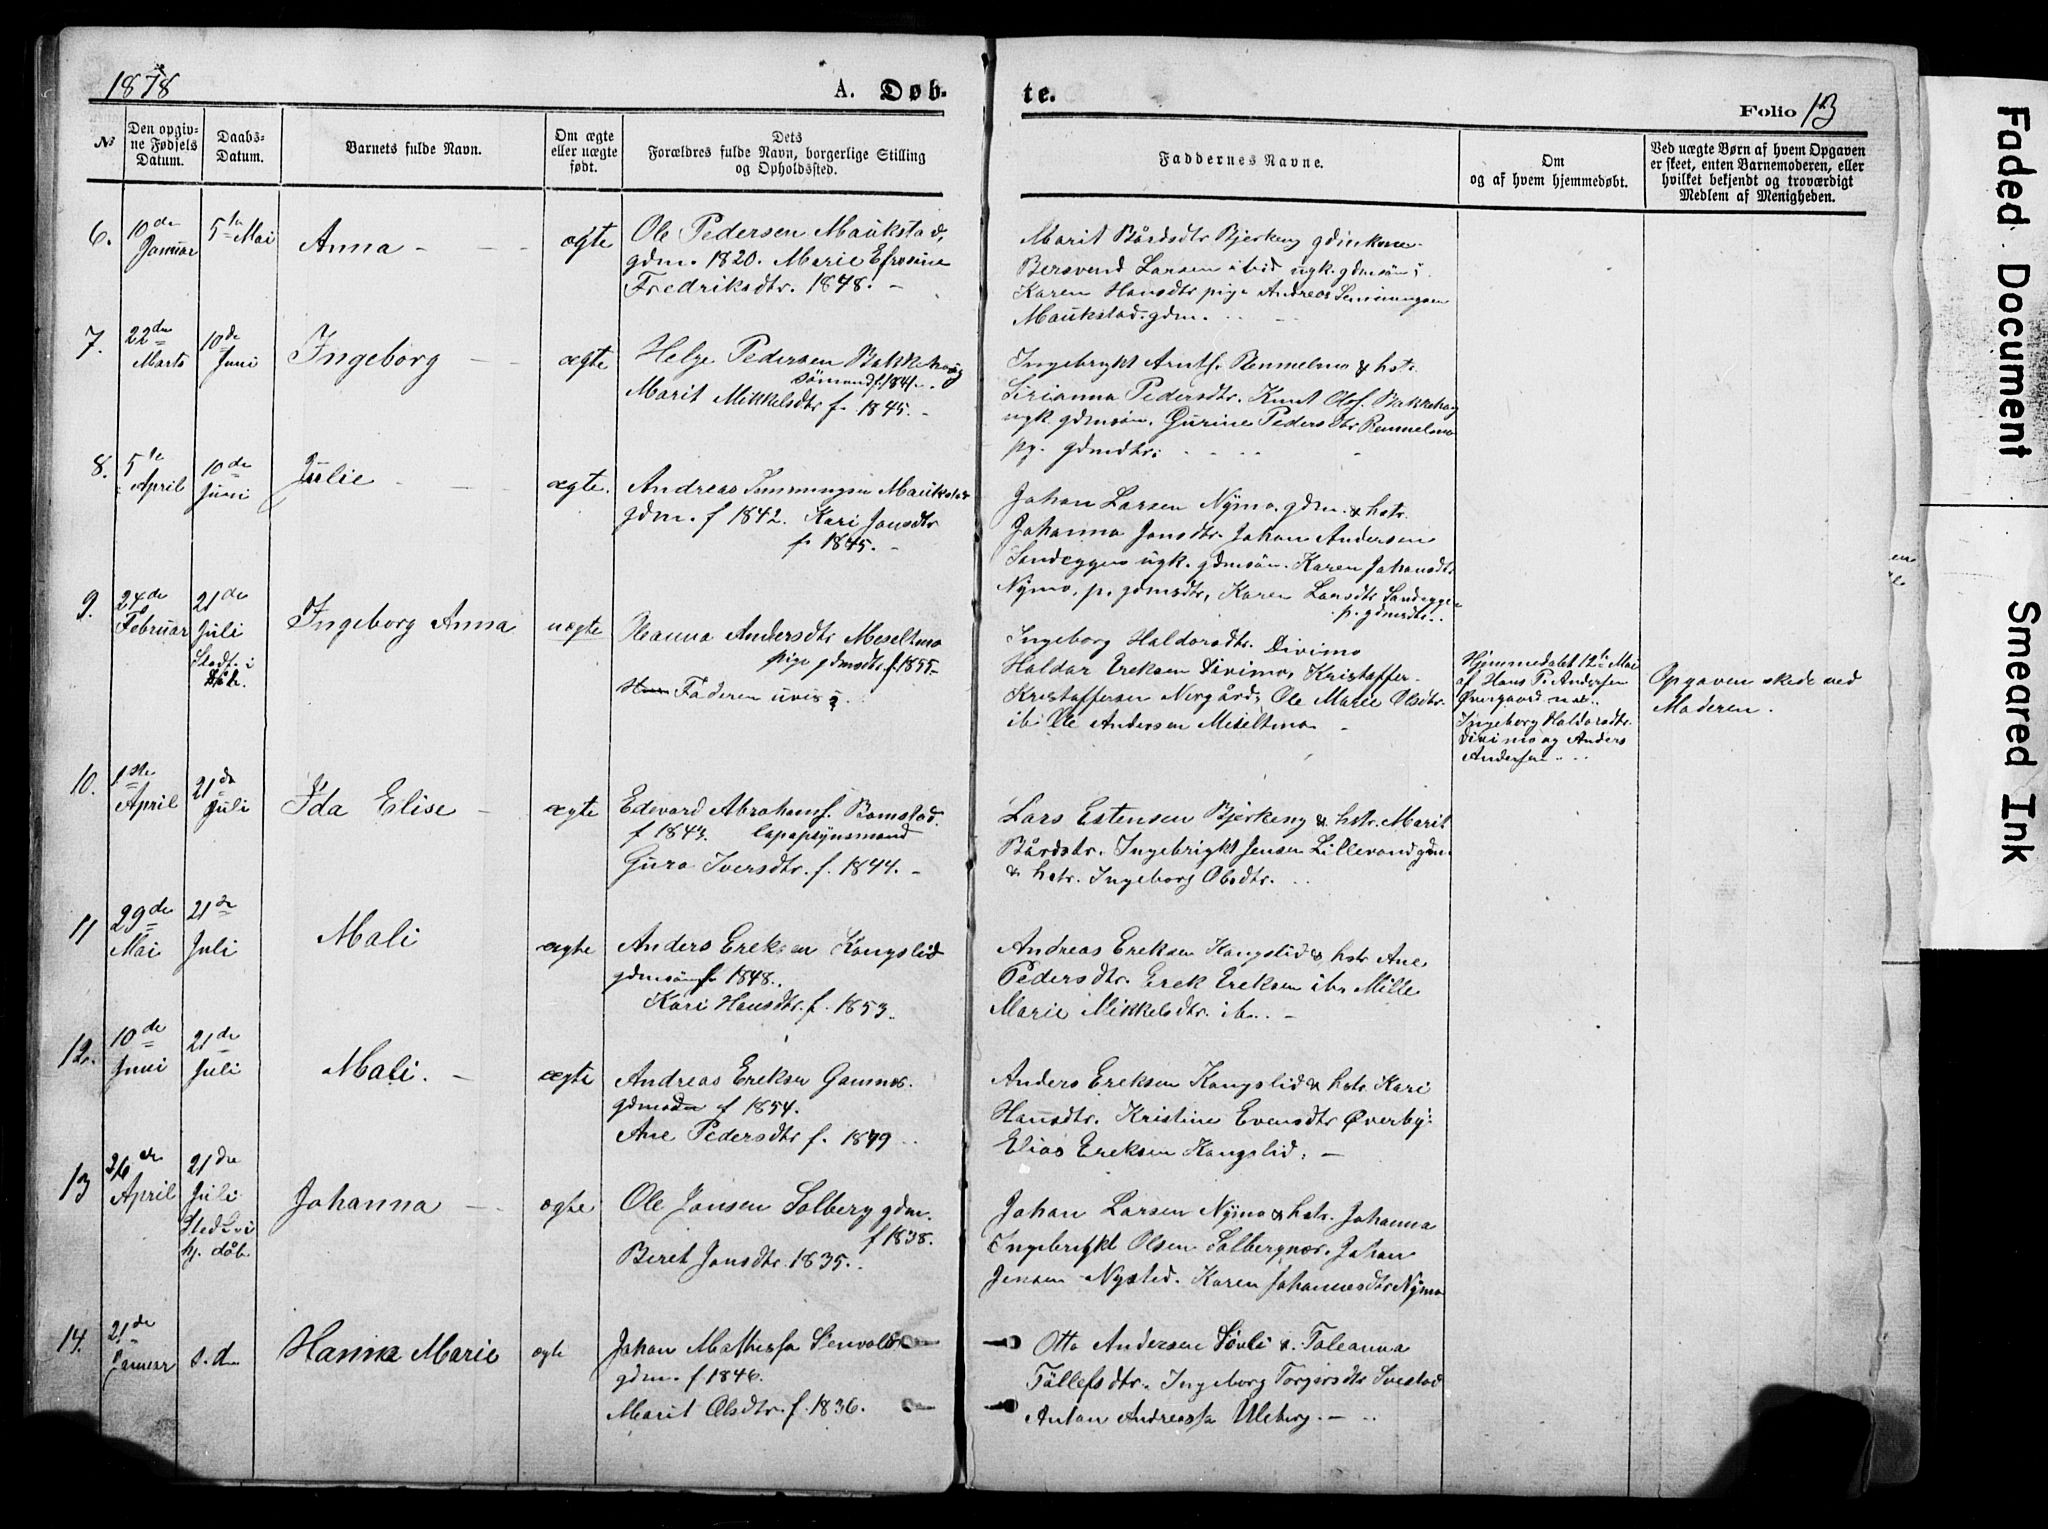 1878
A. Døb-
te.
Folio 13
№
Den opgiv-
ne Fødsels
Datum.
Daabs-
Datum.
Barnets fulde Navn.
Om ægte
eller uægte
født.
Dets
Forældres fulde Navn, borgerlige Stilling
og Opholdssted.
Faddernes Navne.
Om
og af hvem hjemmedøbt.
Ved uægte Børn af hvem Opgaven
er skeet, enten Barnemoderen, eller
hvilket bekjendt og troværdigt
Medlem af Menigheden.
6.
10de
Januar
5te Mai
Anna
ægte
Ole Pedersen Maukstad,
gdm. 1820. Marie Efrosine
Fredriksdtr. 1848.
Marit Bårdsdtr Bjerkeng gdmkone
Bersvend Larsen ibid ugk. gdmsön
Karen Hansdtr pige Andreas Semmingsen
Maukstad. gdm.
7.
22de
Marts
10de
Juni
Ingeborg
ægte
Helge Pedersen Bakkehaug
sömand f. 1841.
Marit Mikkelsdtr f. 1845.
Ingebrykt Arntf. Remmelmo & hst.
Sirianna Pedersdtr. Knut Olsf. Bakkehaug
ugk. gdmsön. Gurine Pedersdtr Remmelmo
pg. gdmdtr.
8.
5te
April
10de
Juni
Julie
ægte.
Andreas Semmingsen Maukstad
gdm. f 1842. Kari Jonsdtr
f. 1845.
Johan Larsen Nymo. gdm. & hstr.
Johanna Jonsdtr. Johan Andersen
Sandeggen ugk. gdmsön. Karen Johansdtr
Nymo, p. gdmsdtr, Karen Larsdtr Sandeggen
p. gdmsdtr.
9.
24de
Februar
21de
Juli
Stadf. i
Kirk.
Ingeborg Anna
uægte
Oleanna Andersdtr Meseltmo
pige gdmsdtr. f. 1855.
Faderen uvis
Ingeborg Haldorsdtr. Divimo
Haldor Ereksen Divimo, Kristoffer
Kristoffersen Norgård, Ole Marie Olsdtr.
ib. Ole Andersen Meseltmo
Hjemmedöbt 12te Mai
af Hans P. Andersen
Övergaard
Ingeborg Haldorsdtr.
Divimo og Anders
Andersen
Opgaven skede ved
Moderen.
10.
1ste
April
21de
Juli
Ida Elise
ægte
Edevard Abrahamf. Bomstad.
f 1843. lapopsynsmand
Guro Iversdtr. f. 1844.
Lars Estensen Bjerkeng & hstr. Marit
Bårdsdtr. Ingebrigt Jensen Lillevand gdm.
& hstr. Ingeborg Olsdtr.
11
29de
Mai
21de
Juli
Mali
ægte
Anders Ereksen Kongslid
gdmsön f. 1848.
Kari Hansdtr. f. 1853.
Andreas Ereksen Kongslid & hstr Ane
Pedersdtr. Erek Ereksen ib. Mille
Marie Mikkelsdtr. ib.
12.
10de
Juni
21de
Juli
Mali.
ægte
Andreas Ereksen Gamnes.
gdmsön f 1854.
Ane Pedersdtr f. 1849
Anders Ereksen Kongslid & hstr Kari
Hansdtr. Kristine Evensdtr Øverby:
Elias Ereksen Kongslid.
13
26de
April
21de
Juli
Sted. i
hj. döb.
Johanna
ægte
Ole Jonsen Solberg gdm.
f 1838.
Beret Jonsdtr. 1835.
Johan Larsen Nymo & hstr. Johanna
Ingebrigt Olsen Solbergnes. Johan
Jensen Nysted. Karen Johannesdtr Nymo
14.
21de
Januar
s. d.
Hanna Marie
ægte
Johan Mathisen Senvold
gdm. f 1846.
Marit Olsdtr. f. 1836.
Otto Andersen Sövli & Taleanna
Tollefsdtr. Ingeborg Torgersdtr Ivestad
Anton Andreassen Uleberg.
Faded Document
Smeared Ink